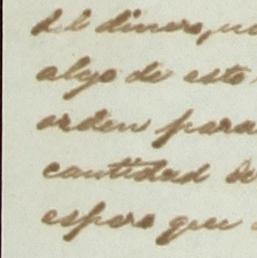 del dinero,
algo de este
orden para
cantidad de
espero que